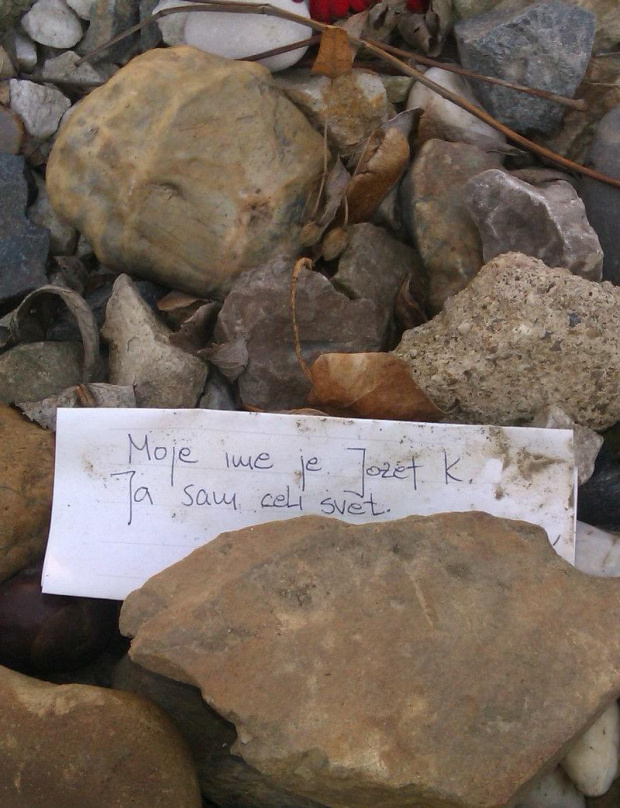 Moje ime je Jozef K.
Ja sam celi svet.